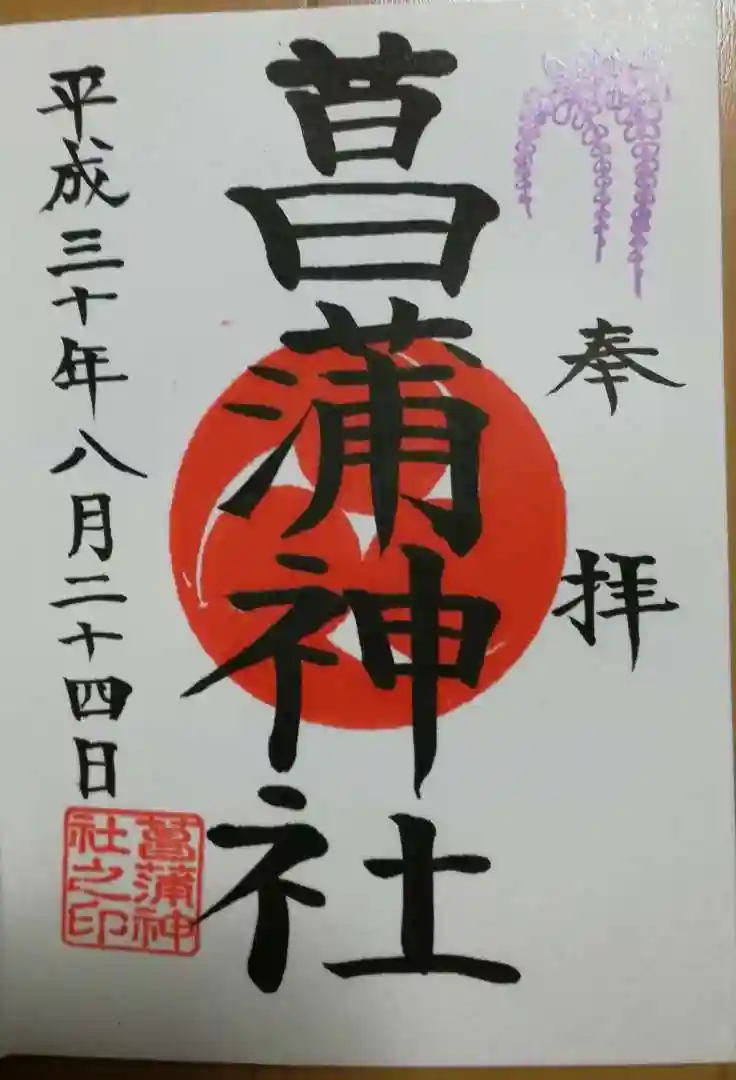 奉拝
菖蒲神社
平成三十年八月二十四日
菖蒲神
社之印